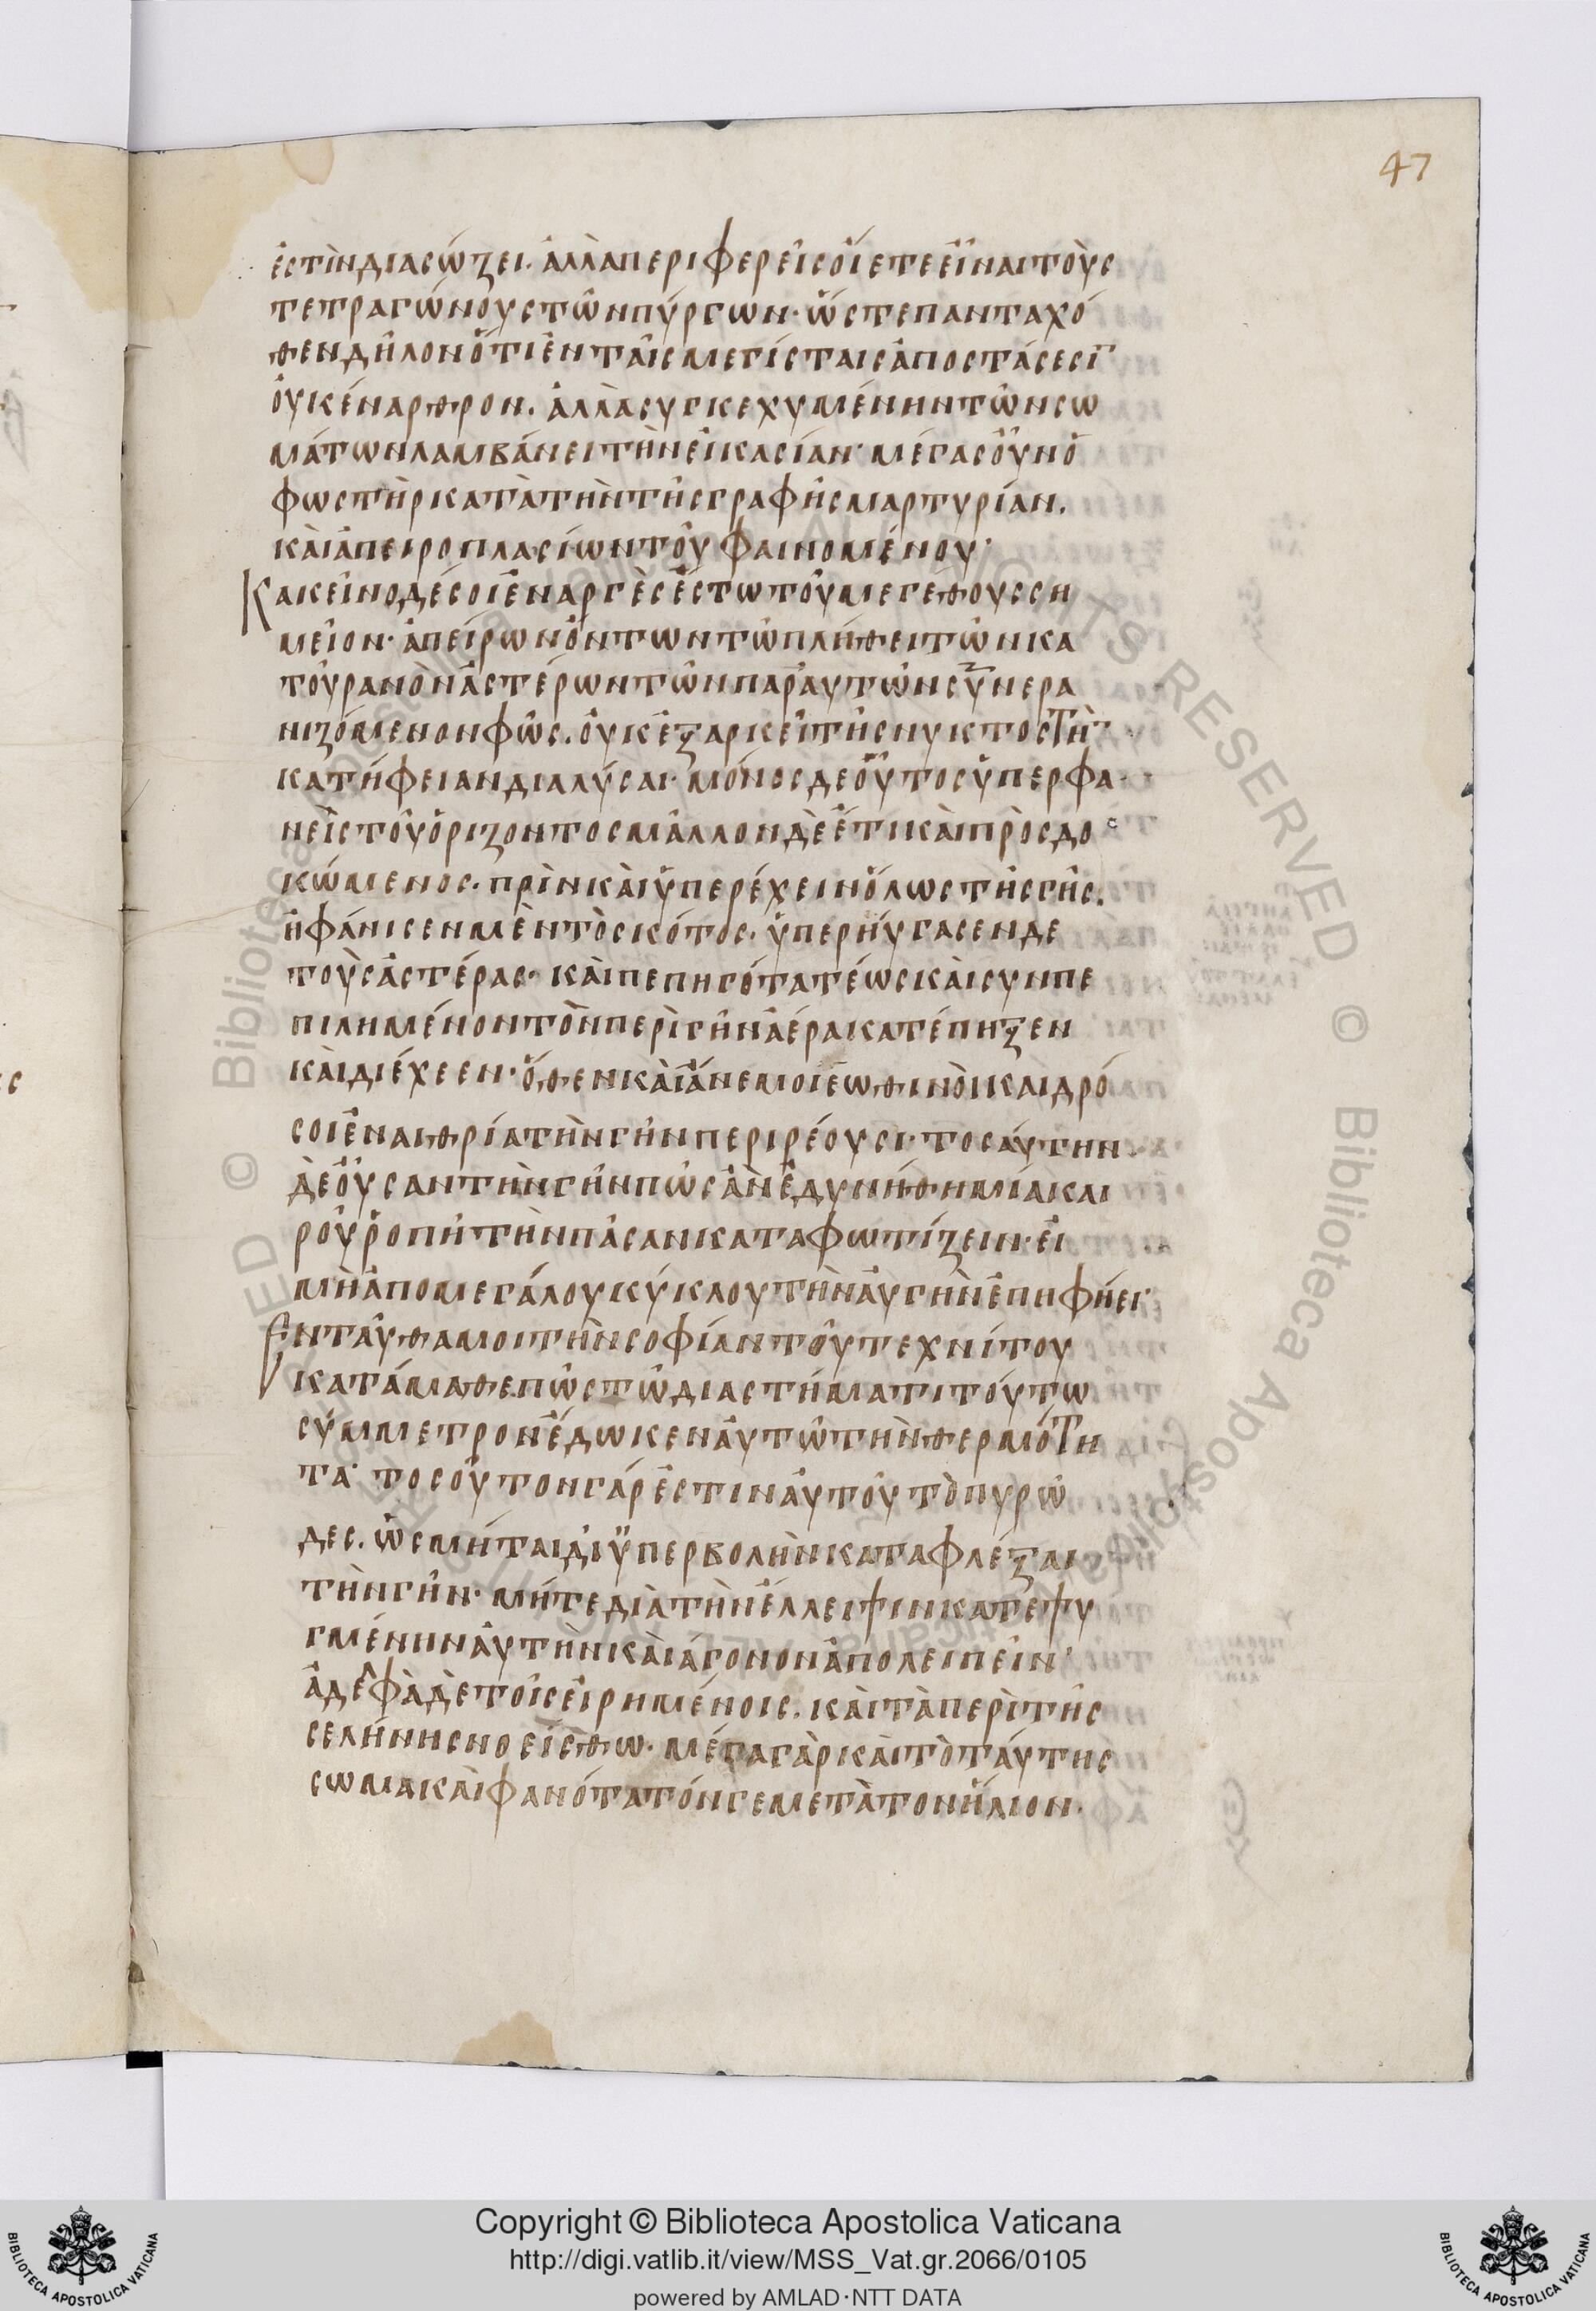 47
ἐστὶν διασώζει. ἀλλὰ περιφερεῖς οἴετε εἶναι τοὺς
τετραγώνους τῶν πύργων· ὥστε πανταχό
θεν δῆλον ὅτι ἐν ταῖς μεγίσταις ἀποστάσεσι
οὐκ ἔναρθρον. ἀλλὰ συγκεχυμένην τῶν σω
μάτων λαμβάνει τὴν εἰκασίαν· μέγας οὖν ὁ
φωστὴρ κατὰ τὴν τῆς γραφῆς μαρτυρίαν.
καὶ ἀπειροπλασίων τοῦ φαινομένου·
Κακεῖνο δέ σοι ἐναργὲς ἔστω τοῦ μεγέθους ση
μεῖον· ἀπείρων ὄντων τῶ πλήθει τῶν κα
τουρανὸν ἀστέρων τῶν παρ αυτῶν συνερα
νιζόμενον φῶς. οὐκ ἐξαρκεῖ τῆς νυκτος τὴν
κατήφειαν διαλύσαι· μόνος δε οὗτος ὑπερφα
νεὶς τοῦ ὁριζοντος μᾶλλον δὲ ἔτι καὶ πρὸσδο
κώμενος. πρὶν καὶ ὑπερέχειν ὅλως τῆς γῆς.
ἠφάνισεν μὲν τὸ σκότος. ὑπερηύγασεν δε
τοὺς ἀστέρας· καὶ πεπηγότα τέως καὶ συνπε
πιλημένον τὸν περὶ γῆν ἀέρα κατέπηξεν
καὶ διέχεεν· ὅθεν καὶ ἄνεμοι ἑωθινὸι και δρό
σοι ἐν αιθρία τὴν γῆν περιρέουσι· τοσαύτην
δὲ οὖσαν τὴν γῆν πῶς ἂν ἐδυνήθη μία και
ροῦ ῥοπῆ τὴν πᾶσαν καταφωτίζειν· εἰ
μὴ ἀπο μεγάλου κύκλου τὴν ἀυγὴν ἐπηφήει·
Ἐνταῦθα μοι τὴν σοφίαν τοῦ τεχνίτου
κατάμαθε πῶς τῶ διαστήματι τούτω
σύμμετρον ἔδωκεν ἀυτῶ τὴν θερμότη
τα· τοσοῦτον γάρ ἐστιν ἀυτοῦ τὸ πυρῶ
δες. ὡς μήται δι ὑπερβολὴν καταφλέξαι
τὴν γῆν· μήτε διὰ τὴν ἔλλειψιν κατεψυ
γμένην ἀυτὴν καὶ ἄγονον ἀπολειπεῖν·
ἀδεφὰ δὲ τοῖς εἰρημένοις. καὶ τὰ περὶ τῆς
σελήνης νοείσθω. μέγα γὰρ καὶ τὸ ταύτης
σωμα καὶ φανότατόν γε μετὰ τον ἥλιον·
Copyright © Biblioteca Apostolica Vaticana
http://digi.vatlib.it/view/MSS_Vat.gr.2066/0105
powered by AMLAD·NTT DATA